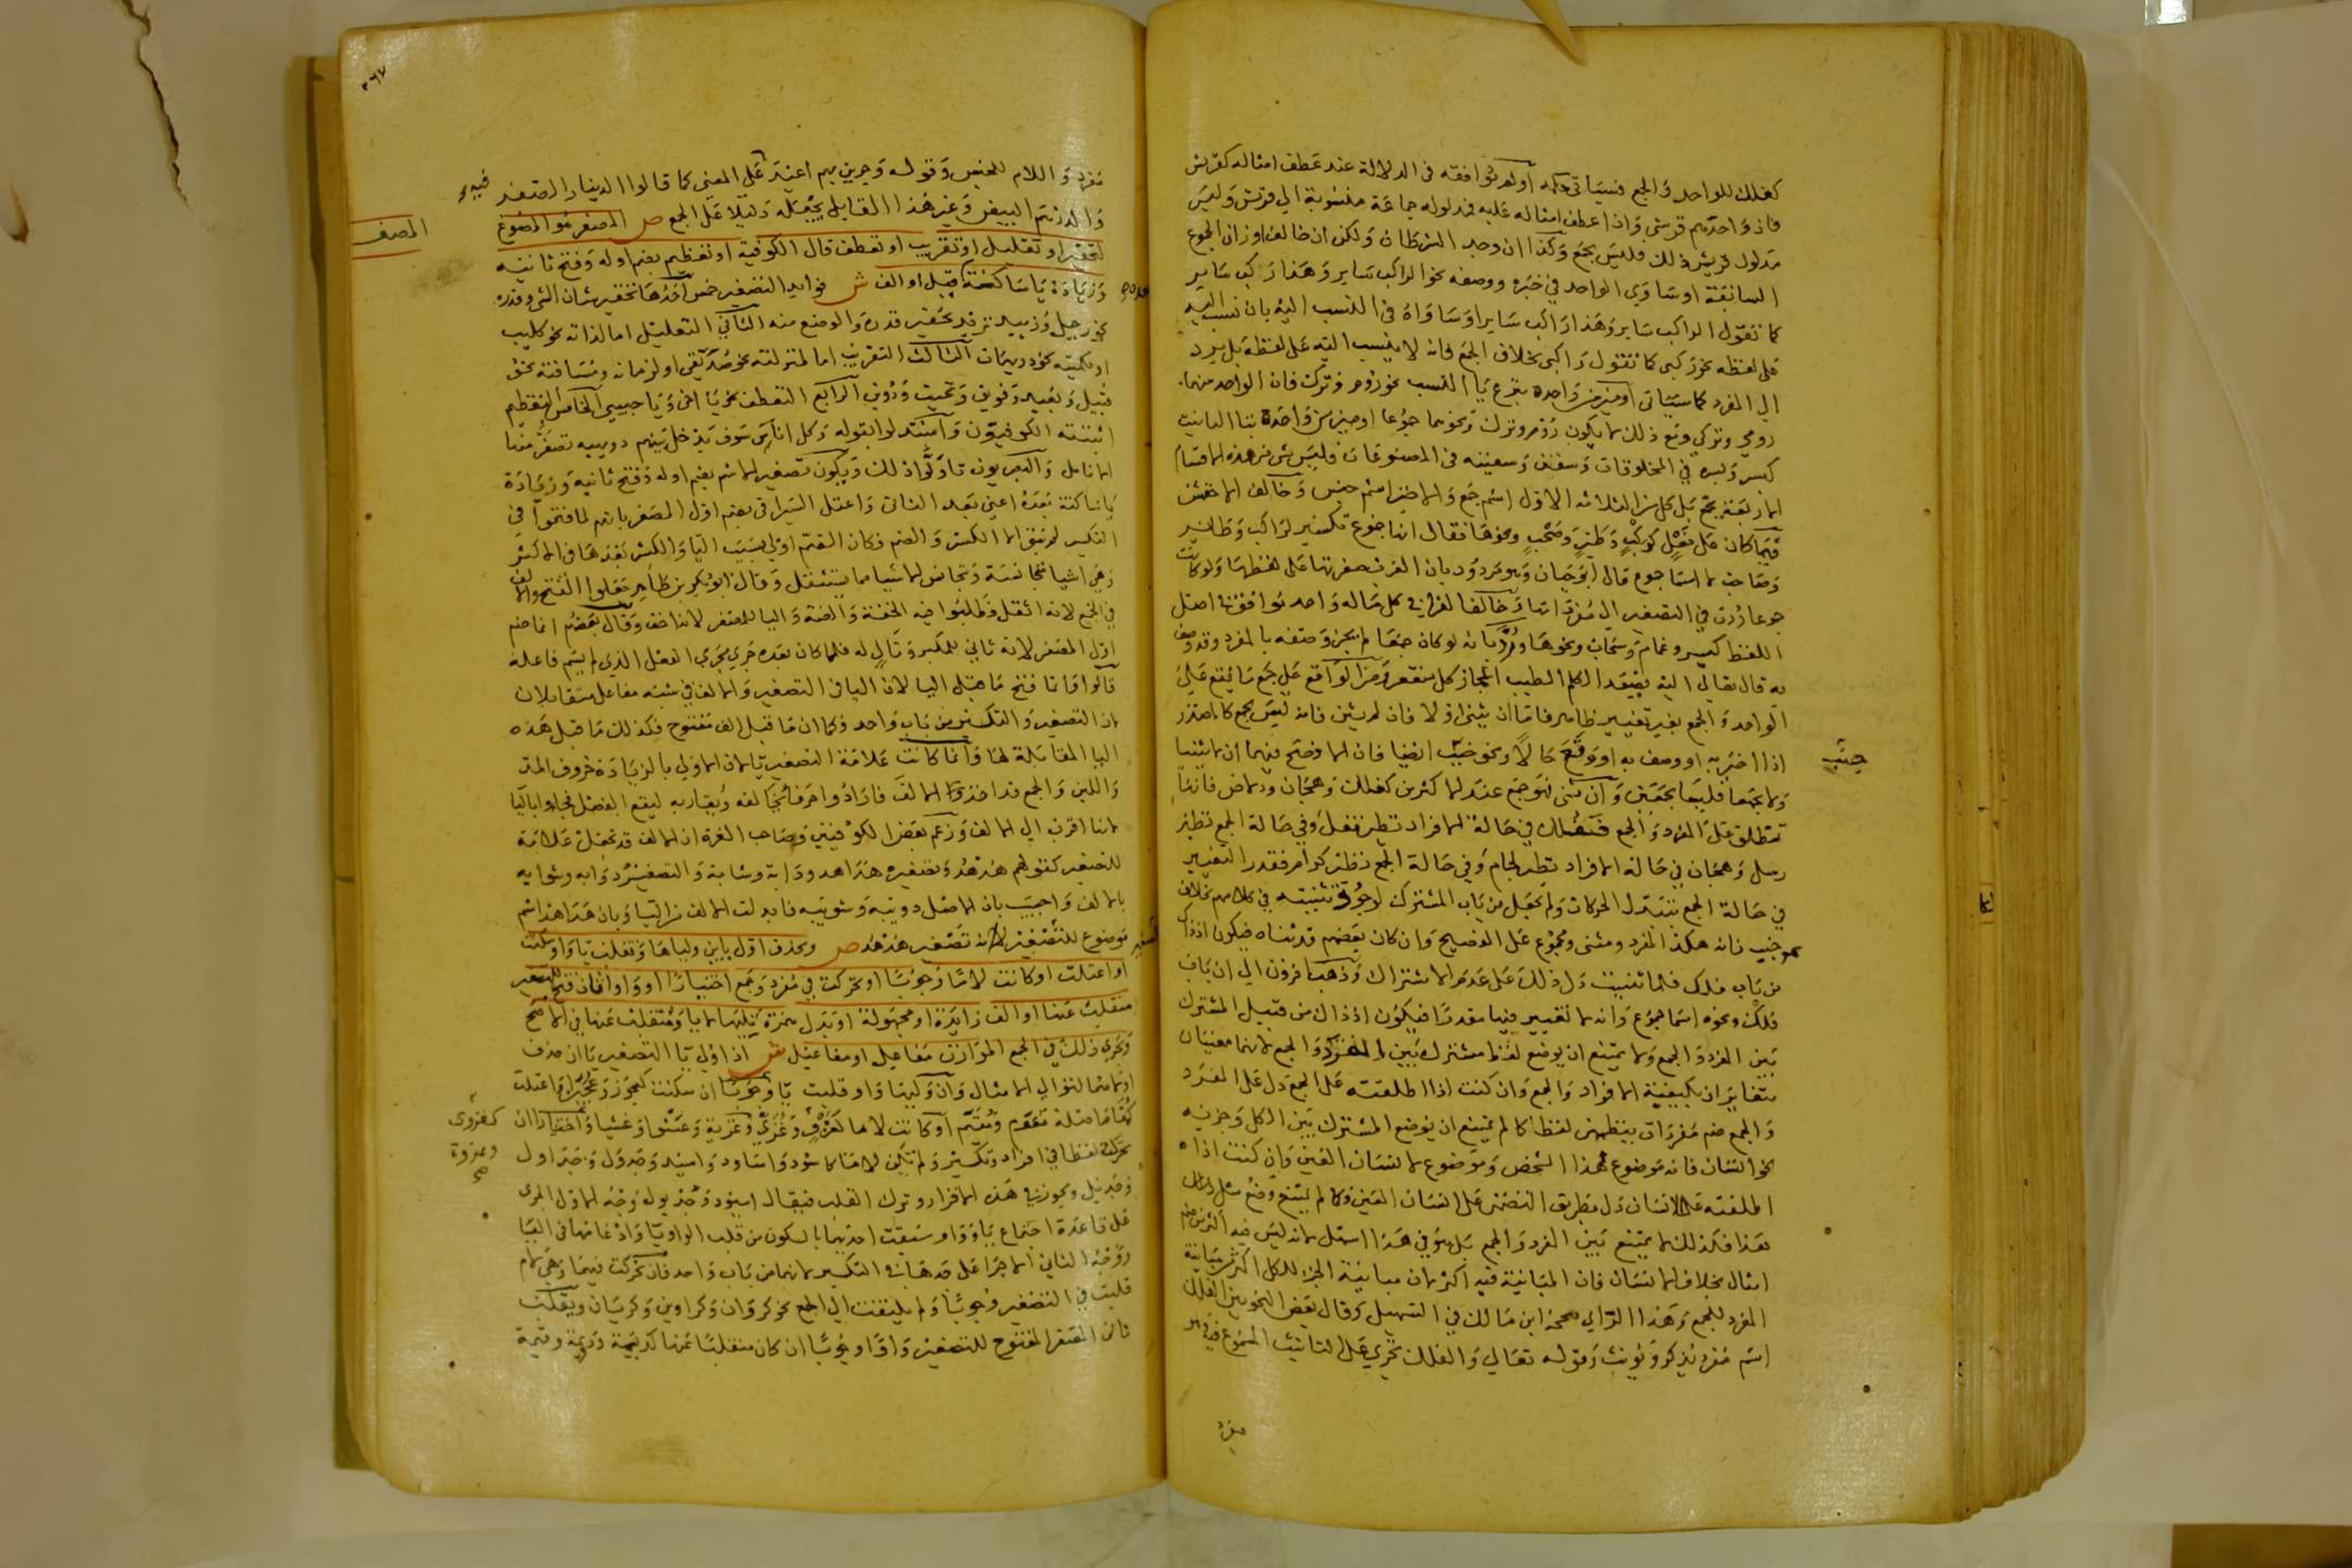 كفلك للواحد والجمع فسياتي حكمه اولم توافقه في الدلالة عند عطف امثاله كقريش
فان واحدهم قرشي واذا عطف امثاله عليه فمدلوله جماعة منسوبة الي قريش وليس
مدلول قريش ذلك فليس بجمع وكذا ان وجد الشرطان ولكن ان خالف اوزان الجموع
السابقة او ساوي الواحد في خبره ووصفه نحو الراكب ساير وهذا ركب ساير
كما تقول الراكب ساير وهذا راكب ساير او ساواه في النسب اليه بان نسب اليه
علي لفظه نحو ركبي كما تقول راكبي بخلاف الجمع فانه لا ينسب اليه علي لفظه بل يرد
الي المفرد كما سياتي او ميز من واحده بنزع يا النسب نحو روم وترك فان الواحد منهما
رومي وتركي ومع ذلك لا يكون روم وترك ونحوهما جموعا او ميز من واحده بتا التانيث
كبسر وبسرة في المخلوقات وسفن وسفينة في المصنوعات فليس شي من هذه الاقسام
الاربعة بجمع بل كل من الثلاثة الاول اسم جمع والاخير اسم جنس وخالف الاخفش
فيما كان علي فعل كركب وطير وصحب ونحوها فقال انها جموع تكسير لراكب وطاير
وصاحب لا اسما جموع قال ابو حيان وهو مردود بان العرب صغرتها علي لفظها ولو كانت
جموعا ردت في التصغير الي مفرداتها وخالفا لفرا في كل ماله واحد توافقه في اصل
اللفظ كبسر وغمام وسحاب ونحوها ورد بانه لو كان جمعا لم يجز وصفه بالمفرد وقد وصف
به قال تعالي اليه يصعد الكلم الطيب اعجاز نخل منقعر ومن الواقع علي جمع ما يقع علي
الواحد والجمع بغير تغيير ظاهر فاما ان يثني او لا فان لم يثن فانه ليس بجمع كالمصدر
اذا اخبر به او وصف به او وقع حالا ونحو جنب ايضا فان الافصح فيهما ان لا يثنيا
ولا يجمعا فليسا بجمعين وان ثني فهو جمع عند الاكثر كفلك وهجان ودلاص فانها
تنطلق علي المفرد والجمع ففلك في حالة الافراد نظير قفل وفي حالة الجمع نظير
رسل وهجان في حالة الافراد نظير لجام وفي حالة الجمع نظير كرام فقدر التغيير
في حالة الجمع بتبدل الحركات ولم يجعل من باب المشترك لوجود تثنيته في كلامهم بخلاف
نحو جنب فانه هكذا المفرد ومثني ومجموع علي الفصيح وان كان بعضهم قد ثناه فيكون اذ ذاك
من باب فلك فلما ثنيت دل ذلك علي عدم الاشتراك وذهب اخرون الي ان باب
فلك ونحوه اسما جموع وانه لا تغيير فيها مقدرا فيكون اذ ذاك من قبيل المشترك
بين المفرد والجمع ولا يمتنع ان يوضع لفظ مشترك بين المفرد والجمع لانهما معنيان
متغايران بكيفية الافراد والجمع وان كنت اذا اطلقته علي الجمع دل علي المفرد
والجمع ضم مفردات ينظمهن لفظ كما لم يمتنع ان يوضع المشترك بين الكل وجزيه
نحو انسان فانه موضوع لهذا الشخص وموضوع لانسان العين وان كنت اذا
اطلقته علي الانسان دل بطريق التضمن علي انسان العين وكما لم يمتنع وضع مثل
هذا فكذلك لا يمتنع بين المفرد والجمع بل هو في هذا اسهل لانه ليس فيه اكثر من ضم
امثال بخلاف الانسان فان المباينة فيه اكثر لان مباينة الجزء للكل اكثر من مباينة
المفرد للجمع وهذا الراي صححه ابن مالك في التسهيل وقال بعض النحويين الفلك
اسم مفرد يذكر ويونث وقوله تعالي والفلك تجري علي التانيث المسموع فيه
مفرد
جنب
٣٦٧
مفرد واللام للجنس وقوله وجرين بهم اعتبر علي المعني كما قالوا الدينار الصفر
والدرهم البيض وغير هذا القايل يجعله دليلا علي الجمع ص المصغر هو المصوغ
لتحقير او تقليل او تقريب او تعطف قال الكوفية او تعظيم بضم اوله وفتح ثانيه
وزيادة يا ساكنة قبل او الف ش فوايد التصغير خمس احدها تحقير شان الشي وقدره
نحو رجيل وزبيد تريد تحقير قدره والوضع منه الثاني التقليل اما لذاته نحو كليب
او كميته نحو دريهمات الثالث التقريب اما لمنزلته نحو صديقي او لزمانه ومسافته نحو
قبيل وبعيد وفويق وتحيت ودوين الرابع التعطف نحو يا اخي ويا حبيبي الخامس التعظيم
اثبته الكوفيون واستدلوا بقوله وكل اناس سوف تدخل بينهم دويهية تصفر منها
الانامل والبصريون تاولوا ذلك ويكون تصغير الاسم بضم اوله وفتح ثانيه وزيادة
يا ساكنة بعده اعني بعد الثاني واعتل السيرافي بضم اول المصغر بانهم لما فتحوا في
التكسير لم يبق الا الكسر والضم فكان الضم اولي بسبب اليا والكسر بعدها في الاكثر
وهي اشيا متجانسة وتجانس الاشيا مما يستثقل وقال ابو بكر بن طاهر جعلوا الفتح والالف
في الجمع لانه اثقل فطلبوا فيه الخفة والضمة واليا للمصغر لانه اخف وقال بعضهم انما ضم
اول المصغر لانه ثاني للمكبر وتال له فلما كان بعده جري مجري الفعل الذي لم يسم فاعله
قالوا وانما فتح ما قبل اليا لان اليا في التصغير والالف في شبه مفاعل متقابلان
لان التصغير والتكسير من باب واحد وكما ان ما قبل الف مفتوح فكذلك ما قبل هذه
اليا المقابلة لها وانما كانت علامة التصغير يا لان الاولي بالزيادة حروف المد
واللين والجمع قد اخذوا الالف فارادوا حرفا يخالفه ويقاربه ليقع الفصل فجاوا باليا
لانها اقرب الي الالف وزعم بعض الكوفيين وصاحب الغرة ان الالف قد تجعل علامة
للتصغير كقولهم هدهد وتصغيره هداهد ودابة وشابة والتصغير دوابه وشوابه
بالالف واجيب بان الاصل دويبة وشويبة فابدلت الالف من اليا وبان هداهد اسم
موضوع للتصغير لا انه تصغير هدهد ص وتحذف اول ياين وليا ها وتقلب يا واو سكنت
او اعتلت او كانت لاما وجوبا او تحركت في مفرد وجمع اختيارا او واو اثان فتح للتصغير
منقلبة عنها او الف زايدة او مجهولة او بدل همزة كليهما لا يا ومنقلب عنها في الاصح
ويجري ذلك في الجمع الموازن مفاعل او مفاعيل ش اذا ولي يا التصغير ياان حذف
اولاهما لتوالي الامثال وان وليها واو قلبت يا وجوبا ان سكنت كعجوز وعجيز او اعتلت
كمقام اصله مقوم ومقيم او كانت لاما كغزو وغزي وغزية وعشوا وعشيا واختيارا ان
تحركت لفظا في افراد وتكسير ولم تكن لاما كاسود واساود واسيد وجدول وجداول
وجديل ويجوز في هذه الاقرار وترك القلب فيقال اسيود وجديول ووجه الاول الجري
علي قاعدة اجتماع يا وواو سبقت احديهما بالسكون من قلب الواو يا وادغامها في اليا
ووجه الثاني الاجرا علي حدها في التكسير لانهما من باب واحد فان تحركت فيهما وهي لام
قلبت في التصغير وجوبا ولم يلتفت الي الجمع نحو كروان وكراوين وكريان ويقلب
ثاني المصغر المفتوح للتصغير واوا وجوبا ان كان منقلبا عنها كديمة ودويمة وقيمة
المصغر
كغزوي
وغزوة
صح